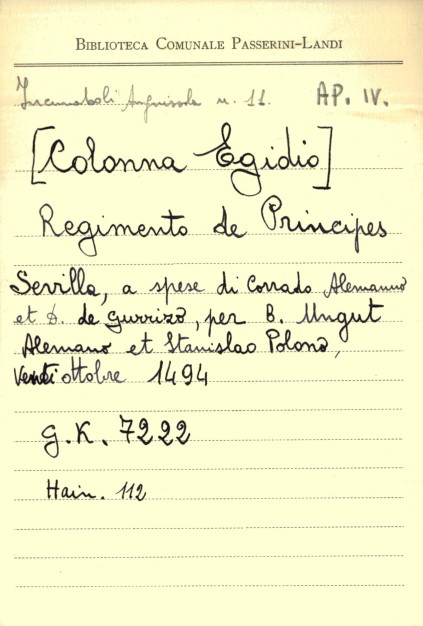 BIBLIOTECA COMUNALE PASSERINI-LANDI
Incunaboli Anguissola n. 11. AP. IV.
[Colonna Egidio]
Regimento de Principes
Sevilla, a spese di Corrado Alemanno
et D. de Gurrizo, per B. Ungut
Alemano et Stanislao Polono,
Venti ottobre 1494
G.K. 7222
Hain. 112